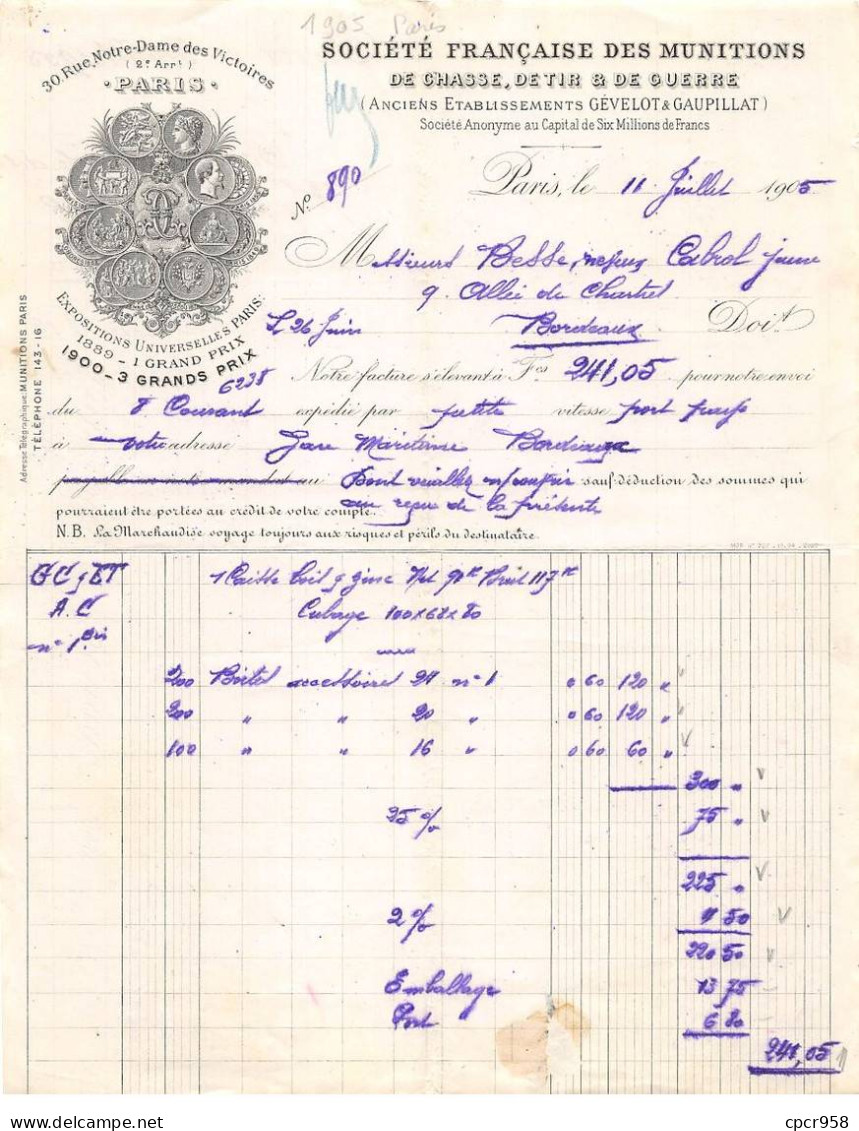 1905 Paris
30, Rue Notre-Dame des Victoires
(2e Arrt)
PARIS
EXPOSITIONS UNIVERSELLES PARIS:
1889 - 1 GRAND PRIX
1900 - 3 GRANDS PRIX
Adresse Télégraphique: MUNITIONS PARIS
TÉLÉPHONE 143-16
SOCIÉTÉ FRANÇAISE DES MUNITIONS
DE CHASSE, DE TIR & DE GUERRE
(ANCIENS ETABLISSEMENTS GÉVELOT & GAUPILLAT)
Société Anonyme au Capital de Six Millions de Francs
N° 890
Paris, le 11 Juillet 1905
Messieurs Besse, neveux Cabrol jeune
9. Allée de Chartres
L 26 Juin Bordeaux Doit
6238
Notre facture s'élevant à Fcs 241,05 pour notre envoi
du 8 Courant expédié par petite vitesse port payé
à votre adresse Gare Maritime Bordeaux
Dont veuillez sauf déduction des sommes qui
au reçu de la présente
pourraient être portées au crédit de votre compte.
N.B. La Marchandise voyage toujours aux risques et périls du destinataire.
GC & ET 1 Caisse Brut 117 k
A.C Cubage 100 x 68 x 80
n° 1
200 Boites accessoires 24 n° 1 0 60 120 "
200 " " 20 " 0 60 120 "
100 " " 16 " 0 60 60 "
300 "
25 % 75 "
225 "
2 % 4 50
220 50
Emballage 13 75
Port 6 80
241,05
cpcr958